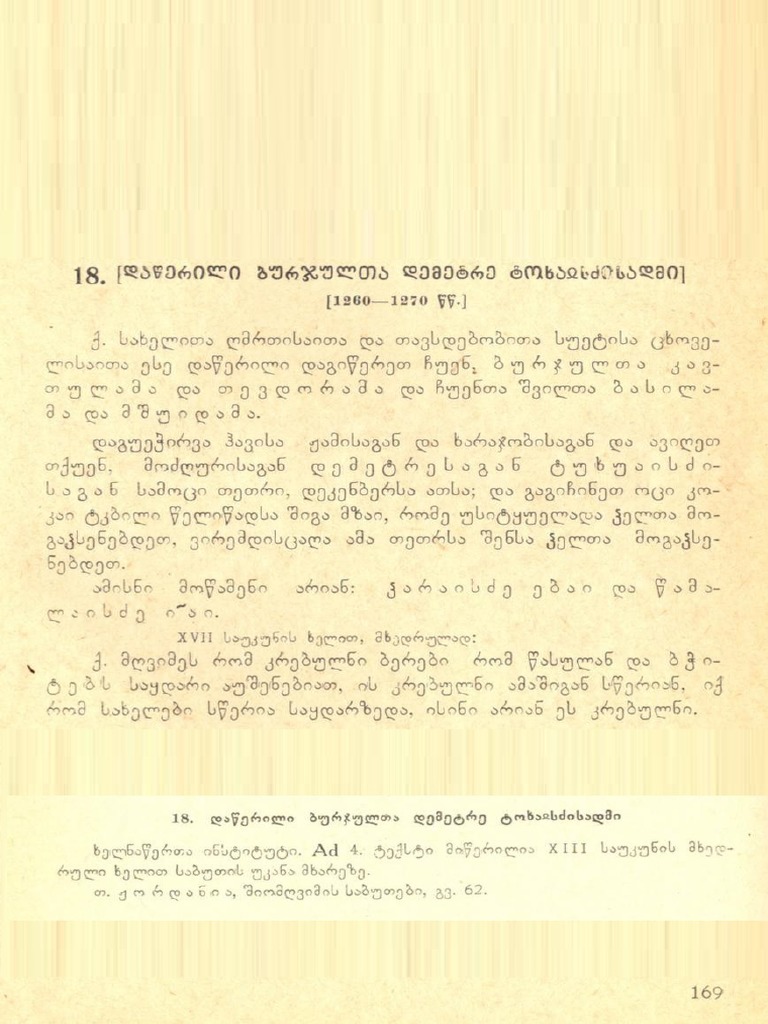 18. [დაწერილი ბურჯულთა დემეტრე ტოხაჲსძისადმი]
[1260—1270 წწ.]
ქ. სახელითა ღმრთისაითა და თავსდებობითა სუეტისა ცხოვე-
ლისაითა ესე დაწერილი დაგიწერეთ ჩუენ, ბურჯულთა კავ-
თულამა და თევდორამა და ჩუენთა შვილთა ბასილა-
მა და მშუიდამა.
დაგუეჭირვა ჰავისა ჟამისაგან და ხარაჯობისაგან და ავიღეთ
თქუენ, მოძღურისაგან დემეტრესაგან ტუხუაისძი-
საგან სამოცი თეთრი, დეკენბერსა ათსა; და გაგიჩინეთ ოცი კო-
კაი ტკბილი წელიწადსა შიგა მზაი, რომე უსიტყუელადა ჴელთა მო-
გაჴსენებდეთ, ვირემდისცაღა ამა თეთრსა შენსა ჴელთა მოგაჴსე-
ნებდეთ.
ამისნი მოწამენი არიან: ჭარაისძე ებაი და წამა-
ლაისძე ი~აი.
XVII საუკუნის ხელით, მხედრულად:
ქ. მღვიმეს რომ კრებულნი ბერები რომ წასულან და ბჭი-
ტებს საყდარი აუშენებიათ, ის კრებულნი ამაშიგან სწერიან, იქ
რომ სახელები სწერია საყდარზედა, ისინი არიან ეს კრებულნი.
18. დაწერილი ბურჯულთა დემეტრე ტოხაჲსძისადმი
ხელნაწერთა ინსტიტუტი. Ad 4. ტექსტი მიწერილია XIII საუკუნის მხედ-
რული ხელით საბუთის უკანა მხარეზე.
თ. ჟორდანია, შიომღვიმის საბუთები, გვ. 62.
169